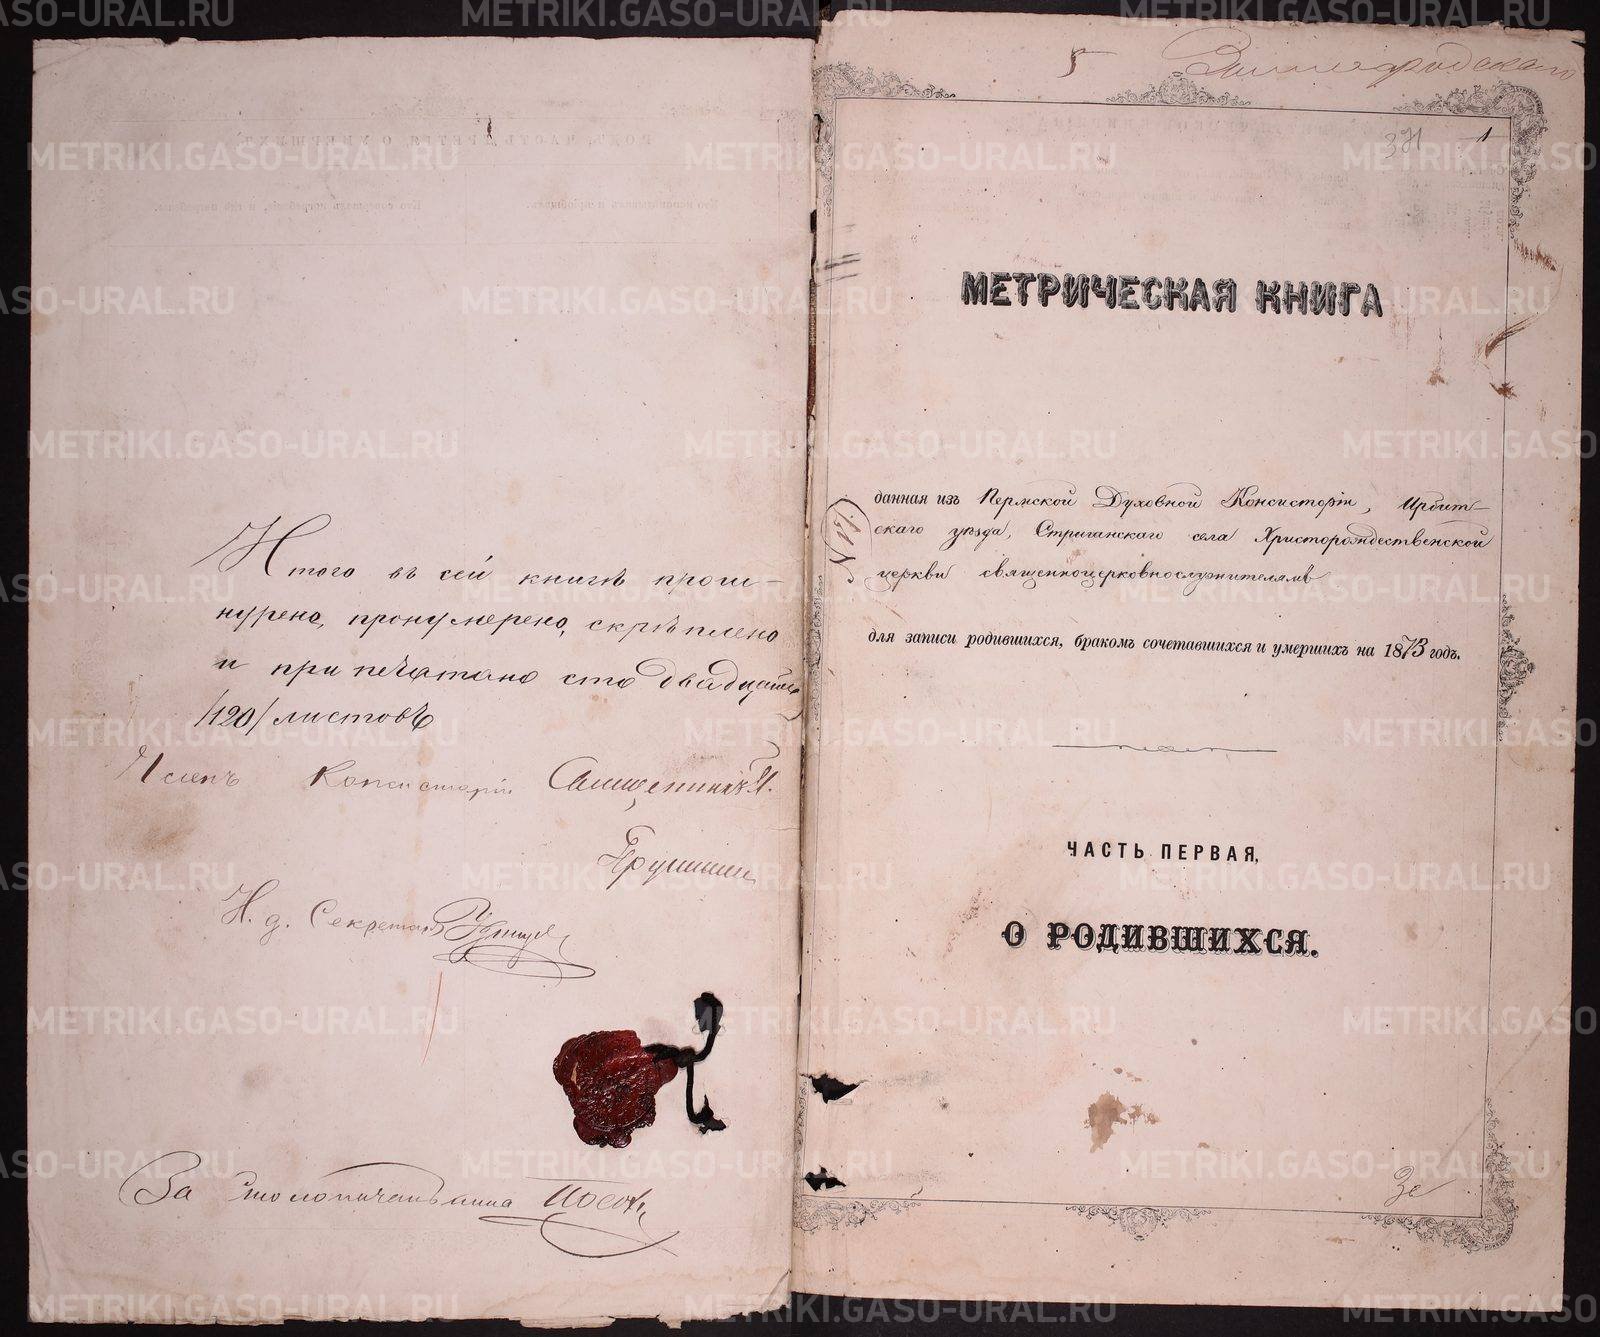 Итого въ сей книгѣ прош-
нурено, пронумерено, скрѣплено
и припечатано сто двадцать
/120/ листовъ
Членъ Консисторіи Священникъ
И. д. Секретаря
За Столоначальника
5
371 1
МЕТРИЧЕСКАЯ КНИГА
данная изъ Пермской Духовной Консисторіи, Ирбит-
скаго уѣзда, Стриганскаго села Христорождественской
церкви священноцерковнослужителямъ
для записи родившихся, бракомъ сочетавшихся и умершихъ на 1873 годъ.
ЧАСТЬ ПЕРВАЯ,
О РОДИВШИХСЯ.
METRIKI.GASO-URAL.RU